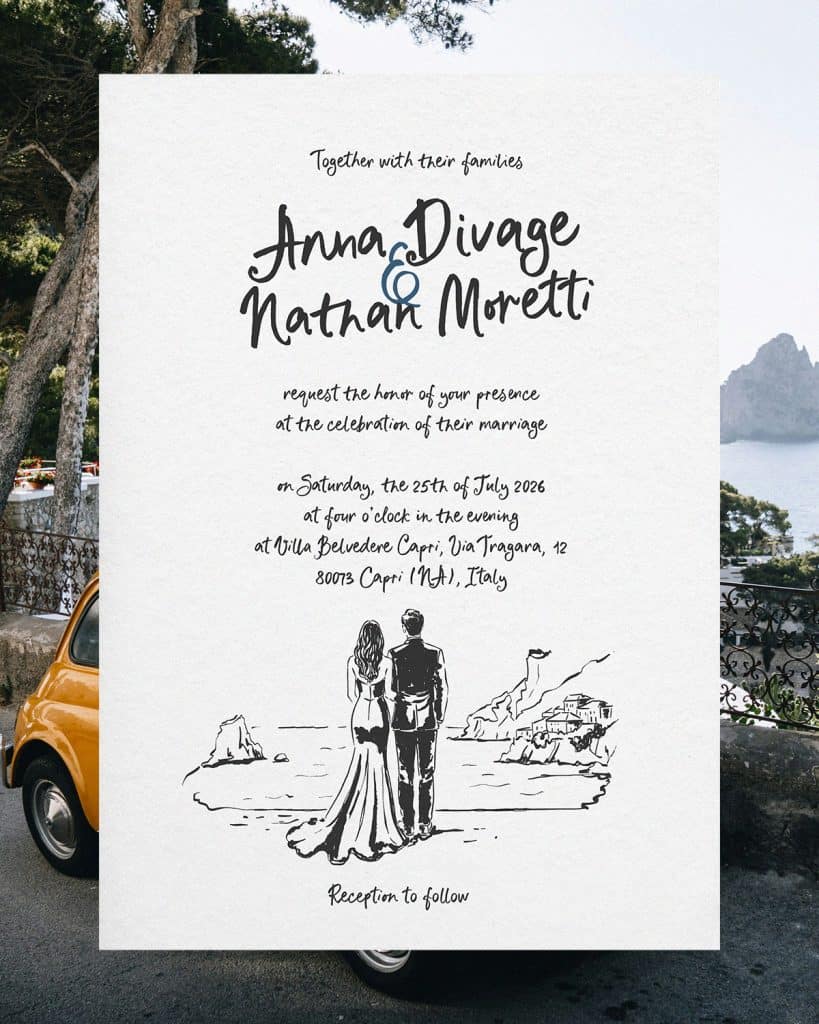 Together with their families
Anna Divage
&
Nathan Moretti
request the honor of your presence
at the celebration of their marriage
on Saturday, the 25th of July 2026
at four o'clock in the evening
at Villa Belvedere Capri, Via Tragara, 12
80073 Capri (NA), Italy
Reception to follow